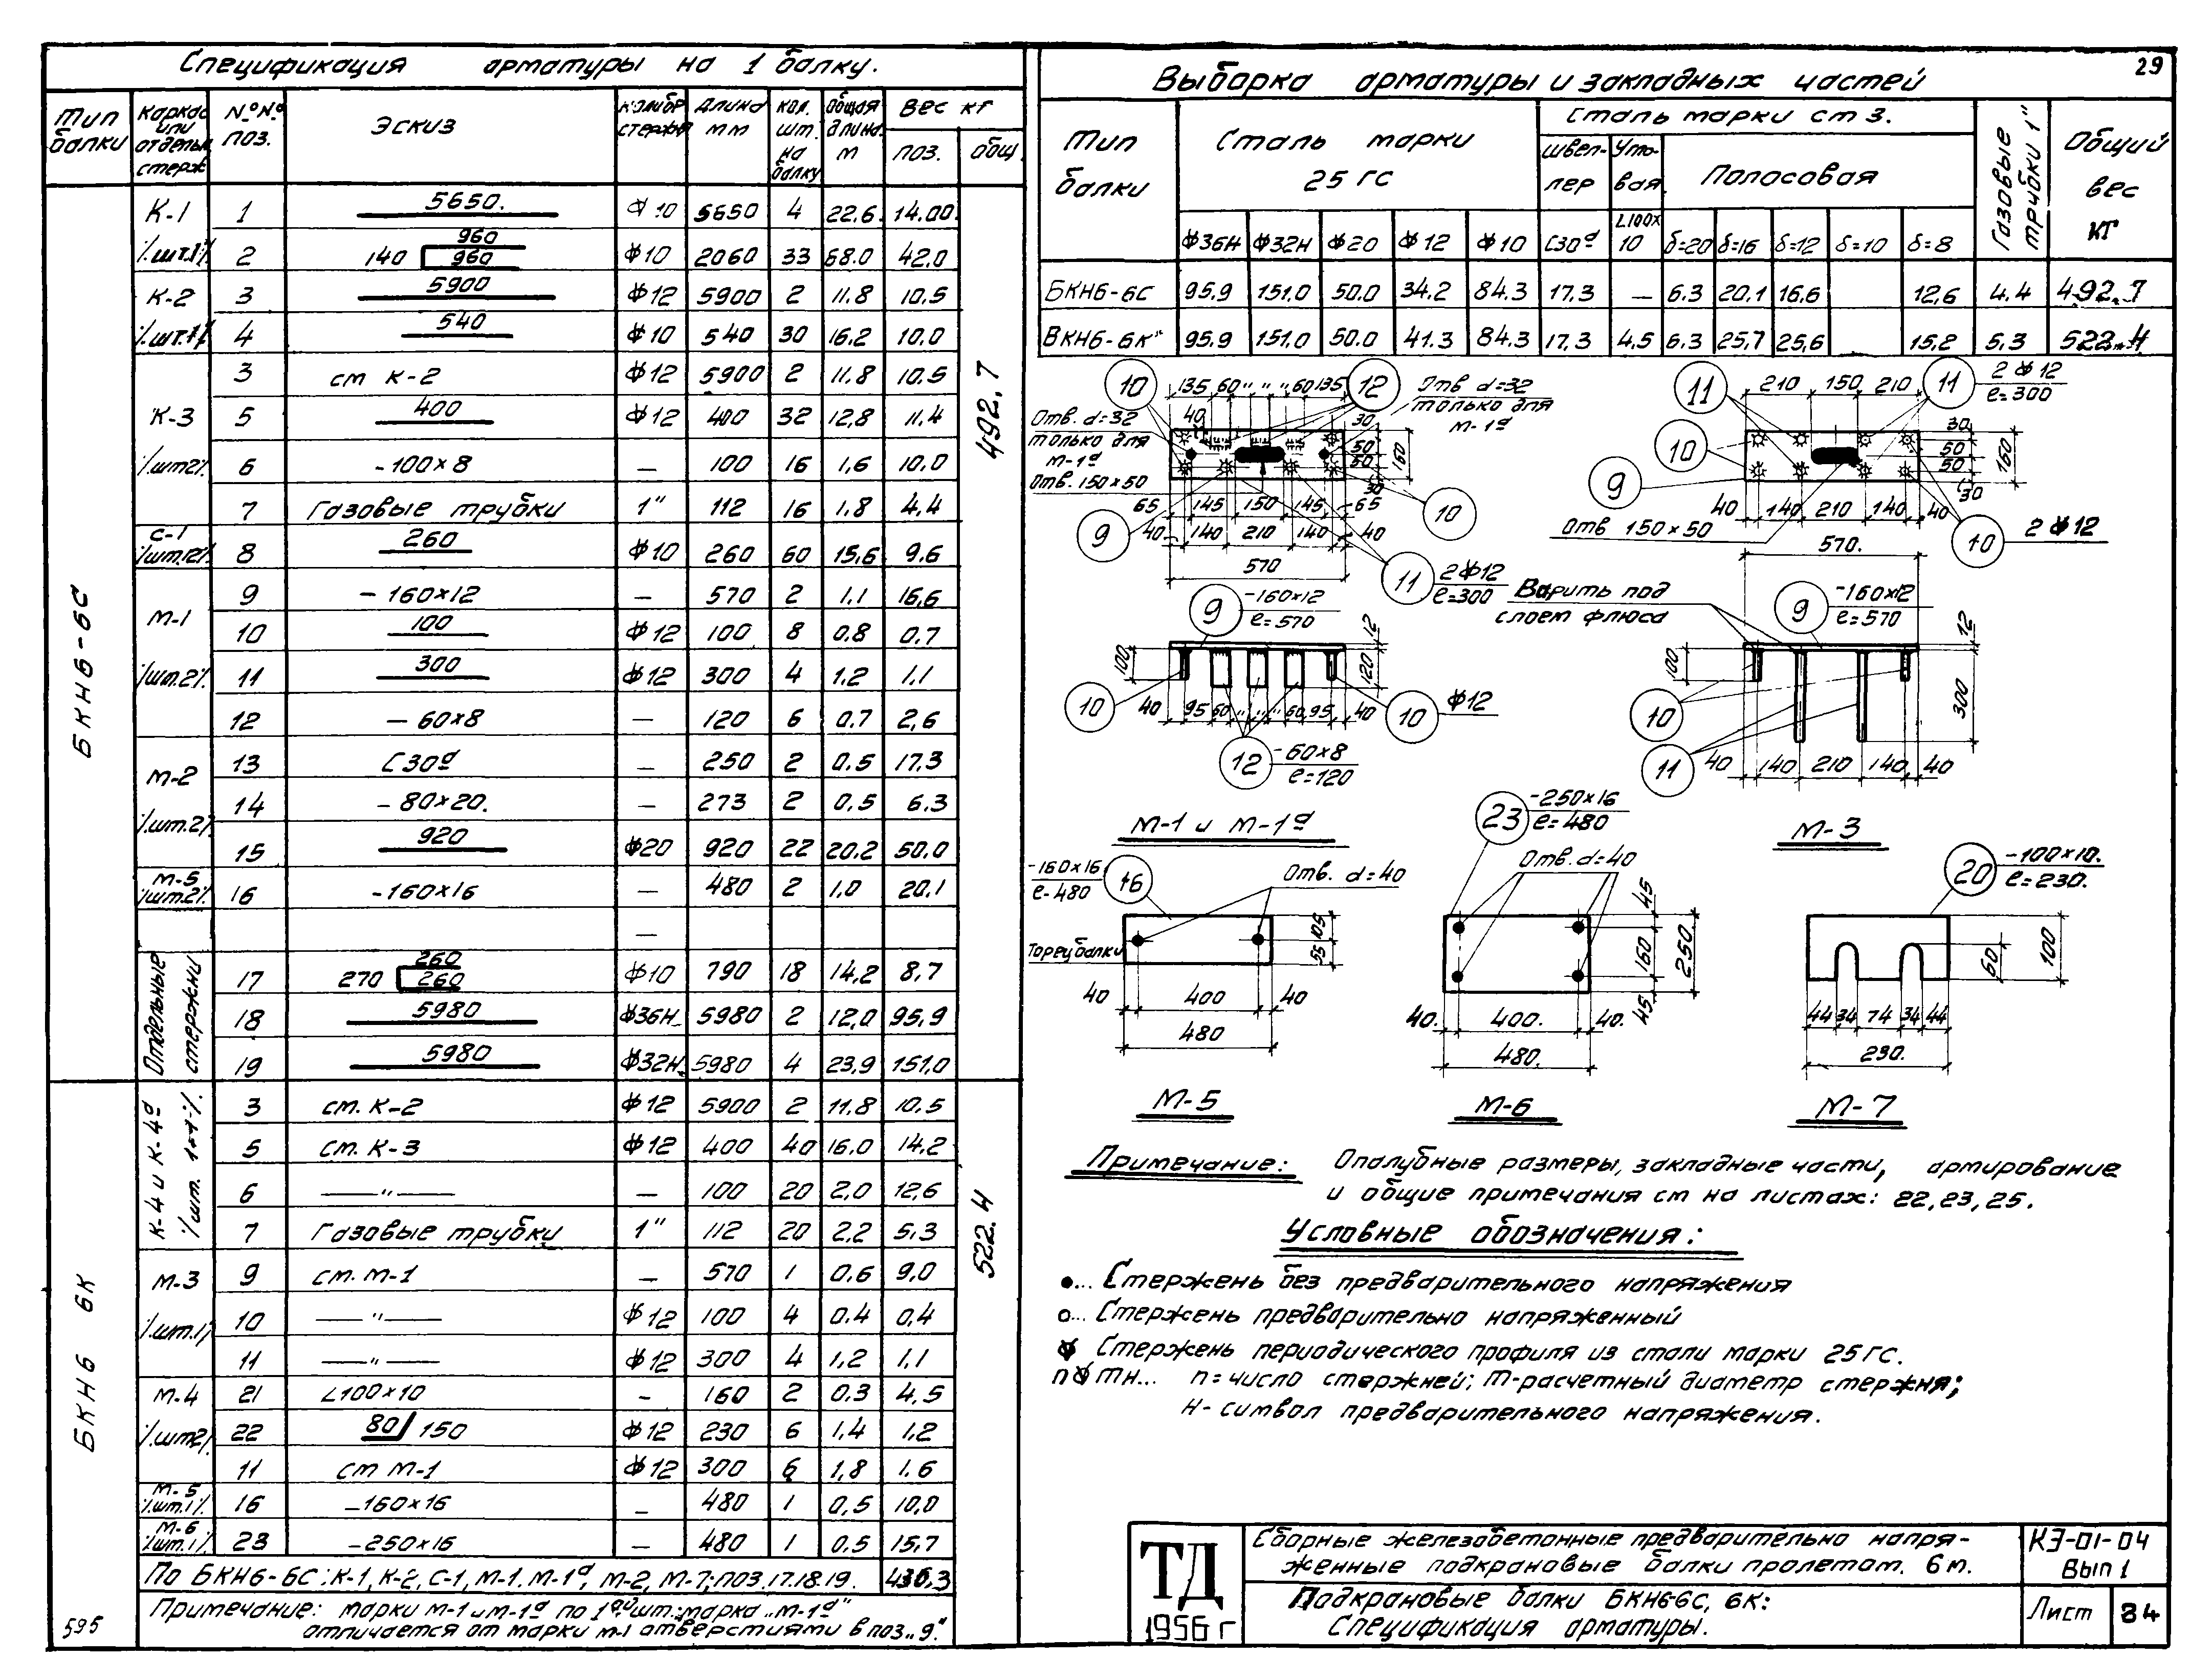 29
Спецификация арматуры на 1 балку.
Тип балки | Каркас или отдельн стерж | №№ поз. | Эскиз | Калибр стержня | Длина мм | Кол. шт. на балку | Общая длина м | Вес кг
поз. | общ.
БКН6-6С
К-1 /шт.1/ | 1 | 5650. | ф10 | 5650 | 4 | 22,6 | 14.00.
2 | 140 960 960 | ф10 | 2060 | 33 | 68.0 | 42,0
К-2 /шт.1/ | 3 | 5900 | ф12 | 5900 | 2 | 11.8 | 10.5
4 | 540 | ф10 | 540 | 30 | 16,2 | 10,0
К-3 /шт.2/ | 3 | ст К-2 | ф12 | 5900 | 2 | 11.8 | 10.5
5 | 400 | ф12 | 400 | 32 | 12,8 | 11,4
6 | -100×8 | — | 100 | 16 | 1,6 | 10,0
7 | Газовые трубки | 1" | 112 | 16 | 1,8 | 4,4
С-1 /шт.12/ | 8 | 260 | ф10 | 260 | 60 | 15,6 | 9.6
М-1 /шт.2/ | 9 | -160×12 | — | 570 | 2 | 1,1 | 16,6
10 | 100 | ф12 | 100 | 8 | 0.8 | 0.7
11 | 300 | ф12 | 300 | 4 | 1.2 | 1,1
12 | -60×8 | — | 120 | 6 | 0.7 | 2,6
М-2 /шт.2/ | 13 | С30ª | — | 250 | 2 | 0.5 | 17.3
14 | -80×20. | — | 273 | 2 | 0,5 | 6.3
15 | 920 | ф20 | 920 | 22 | 20,2 | 50,0
М-5 /шт.2/ | 16 | -160×16 | — | 480 | 2 | 1,0 | 20,1
—
Отдельные стержни | 17 | 270 260 260 | ф10 | 790 | 18 | 14,2 | 8,7
18 | 5980 | ф36Н | 5980 | 2 | 12,0 | 95,9
19 | 5980 | ф32Н | 5980 | 4 | 23,9 | 151,0
492,7
БКН6 6К
К-4 и К-4ª /шт. 1+1/. | 3 | ст. К-2 | ф12 | 5900 | 2 | 11,8 | 10,5
5 | ст. К-3 | ф12 | 400 | 40 | 16.0 | 14,2
6 | —"— | — | 100 | 20 | 2,0 | 12,6
7 | Газовые трубки | 1" | 112 | 20 | 2,2 | 5,3
М-3 /шт.1/ | 9 | ст. М-1 | — | 570 | 1 | 0,6 | 9,0
10 | —"— | ф12 | 100 | 4 | 0.4 | 0,4
11 | —"— | ф12 | 300 | 4 | 1,2 | 1,1
М.4 /шт.2/ | 21 | ∠100×10 | - | 160 | 2 | 0.3 | 4,5
22 | 80 150 | ф12 | 230 | 6 | 1,4 | 1,2
11 | ст М-1 | ф12 | 300 | 6 | 1,8 | 1.6
М-5 /шт.1/. | 16 | -160×16 | — | 480 | 1 | 0,5 | 10,0
М-6 /шт.1/. | 23 | -250×16 | — | 480 | 1 | 0.5 | 15,7
522.4
По БКН6-6С: К-1, К-2, С-1, М-1. М-1ª, М-2, М-7; поз. 17.18.19. | 436,3
Примечание: марки М-1 и М-1ª по 1ой шт.; марка „М-1ª"
отличается от марки М-1 отверстиями в поз „9."
595
Выборка арматуры и закладных частей
Тип балки | Сталь марки 25 ГС | Сталь марки ст 3. | Газовые трубки 1" | Общий вес кг
швеллер | Угловая | Полосовая
ф36Н | ф32Н | ф20 | ф12 | ф10 | С30ª | ∟100× 10 | δ=20 | δ=16 | δ=12 | δ=10 | δ=8
БКН6-6С | 95,9 | 151.0 | 50.0 | 34.2 | 84.3 | 17.3 | — | 6.3 | 20,1 | 16.6 | 12,6 | 4.4 | 492.7
БКН6-6К" | 95.9 | 151.0 | 50.0 | 41.3 | 84.3 | 17.3 | 4,5 | 6.3 | 25,7 | 25,6 | 15.2 | 5.3 | 522.4
10 135 60 " " " 60 135 12
Отв d=32 только для М-1ª
Отв. d=32 только для М-1ª
Отв. 150×50
40 30 50 50 30 160
65 145 150 145 65
40 140 210 140 40
570
9 10 11
2ф12 ℓ=300
11 210 150 210 11
2 ф 12 ℓ=300
10 9
30 50 50 30 160
40 140 210 140 40
Отв 150×50
10 2 ф12
570.
Варить под слоем флюса
9 -160×12 ℓ=570
100 12 120
10 40 95 60 " " " 60 95 40 10 ф12
12 -60×8 ℓ=120
М-1 и М-1ª
9 -160×12 ℓ=570
100 12 300
10 11
40 140 210 140 40
М-3
-160×16 ℓ-480 16
Отв. d=40
Торец балки
55 105
40 400 40
480
М-5
23 -250×16 ℓ=480
Отв. d=40
45 160 45 250
40. 400. 40.
480.
М-6
20 -100×10. ℓ=230.
60 100
44 34 74 34 44
230.
М-7
Примечание: Опалубные размеры, закладные части, армирование
и общие примечания ст на листах: 22,23,25.
Условные обозначения:
●... Стержень без предварительного напряжения
○... Стержень предварительно напряженный
ф Стержень периодического профиля из стали марки 25 ГС.
n ф m н... n = число стержней; m-расчетный диаметр стержня;
Н- символ предварительного напряжения.
ТД
1956 г
Сборные железобетонные предварительно напря-
женные подкрановые балки пролетом. 6 м.
КЭ-01-04
Вып 1
Подкрановые балки БКН6-6С, 6К:
Спецификация арматуры.
Лист 34